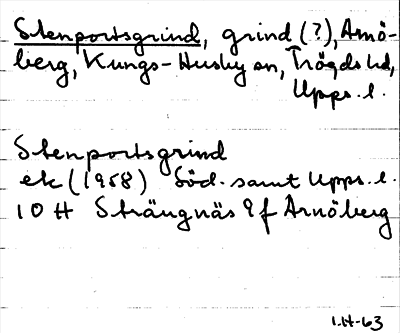 Stenportsgrind, grind (?), Arnö-
berg, Kungs-Husby sn, Trögds hd,
Upps. l.
Stenportsgrind
ek (1958) Söd. samt Upps. l.
10 H Strängnäs 9 f Arnöberg
1.H-63